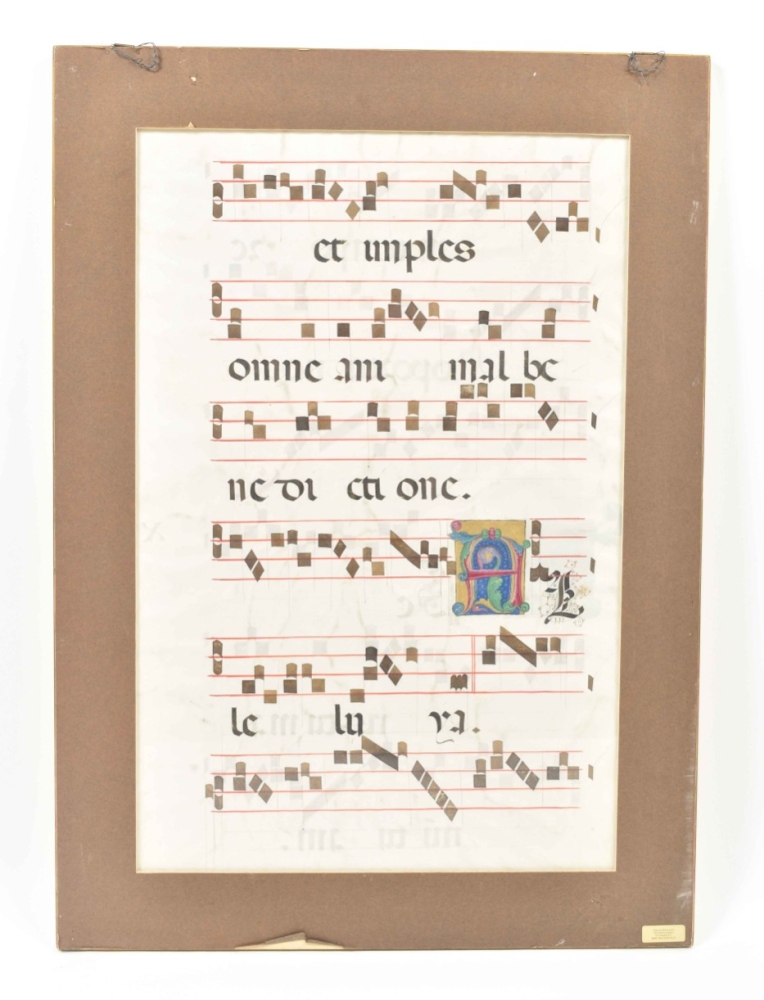 et imples
omne ani mal be
ne di cti one.
A L
le lu ya.